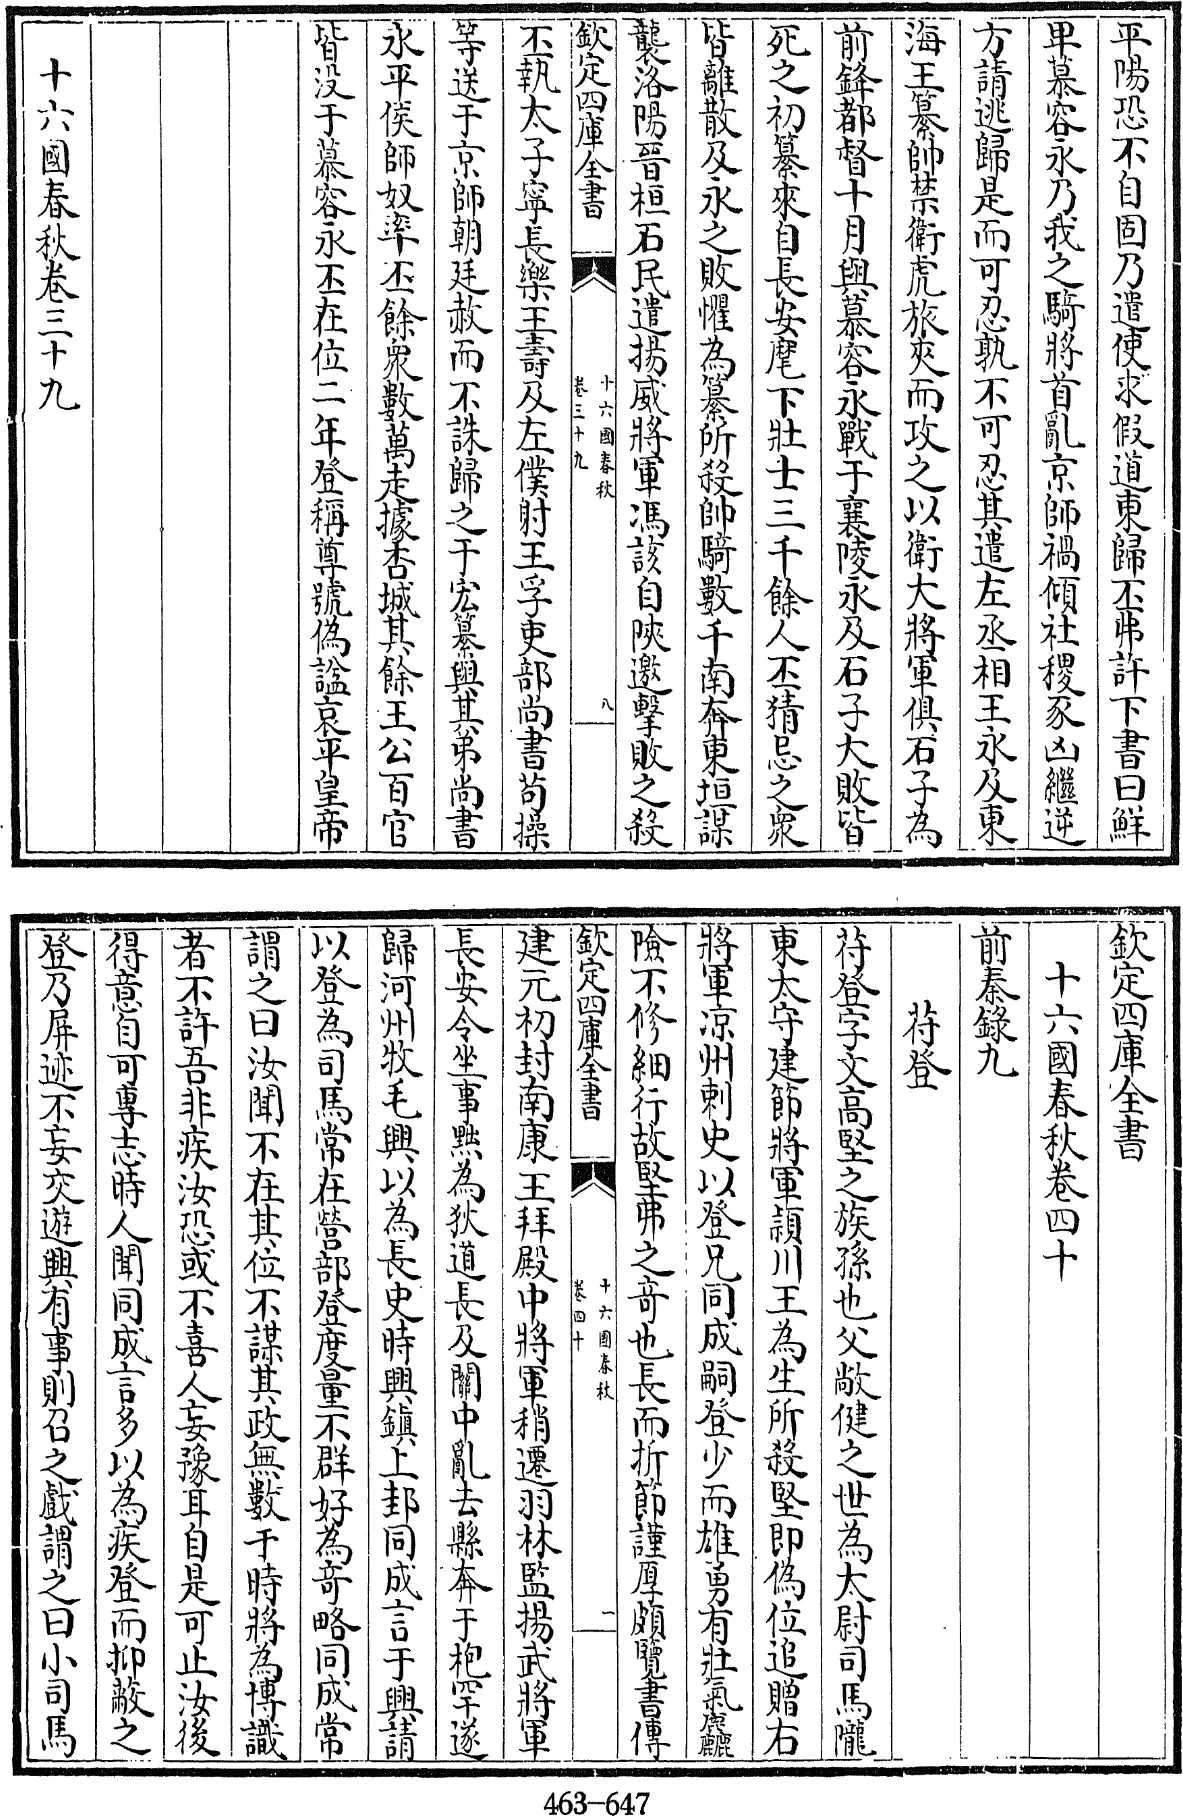 平陽恐不自固乃遣使求假道東歸丕弗許下書曰鮮
卑慕容永乃我之騎將首亂京師禍傾社稷豕凶繼逆
方請逃歸是而可忍孰不可忍其遣左丞相王永及東
海王纂帥禁衛虎旅夾而攻之以衛大將軍俱石子為
前鋒都督十月與慕容永戰于襄陵永及石子大敗皆
死之初纂來自長安麾下壯士三千餘人丕猜忌之衆
皆離散及永之敗懼為纂所殺帥騎數千南奔東垣謀
襲洛陽晉桓石民遣揚威將軍馮該自陝邀擊敗之殺
欽定四庫全書
十六國春秋
卷三十九
八
丕執太子寧長樂王壽及左僕射王孚吏部尚書苟操
等送于京師朝廷赦而不誅歸之于宏纂與其弟尚書
永平侯師奴率丕餘衆數萬走據杏城其餘王公百官
皆没于慕容永丕在位二年登稱尊號偽諡哀平皇帝
十六國春秋卷三十九
欽定四庫全書
十六國春秋卷四十
前秦錄九
苻登
苻登字文高堅之族孫也父敞健之世為太尉司馬隴
東太守建節將軍頴川王為生所殺堅即偽位追贈右
將軍凉州刺史以登兄同成嗣登少而雄勇有壯氣麤
險不修細行故堅弗之奇也長而折節謹厚頗覽書傳
欽定四庫全書
十六國春秋
卷四十
一
建元初封南康王拜殿中將軍稍遷羽林監揚武將軍
長安令坐事黜為狄道長及關中亂去縣奔于枹罕遂
歸河州牧毛興以為長史時興鎮上邽同成言于興請
以登為司馬常在營部登度量不群好為奇略同成常
謂之曰汝聞不在其位不謀其政無數于時將為博識
者不許吾非疾汝恐或不喜人妄豫耳自是可止汝後
得意自可專志時人聞同成言多以為疾登而抑蔽之
登乃屏迹不妄交遊興有事則召之戲謂之曰小司馬
463-647